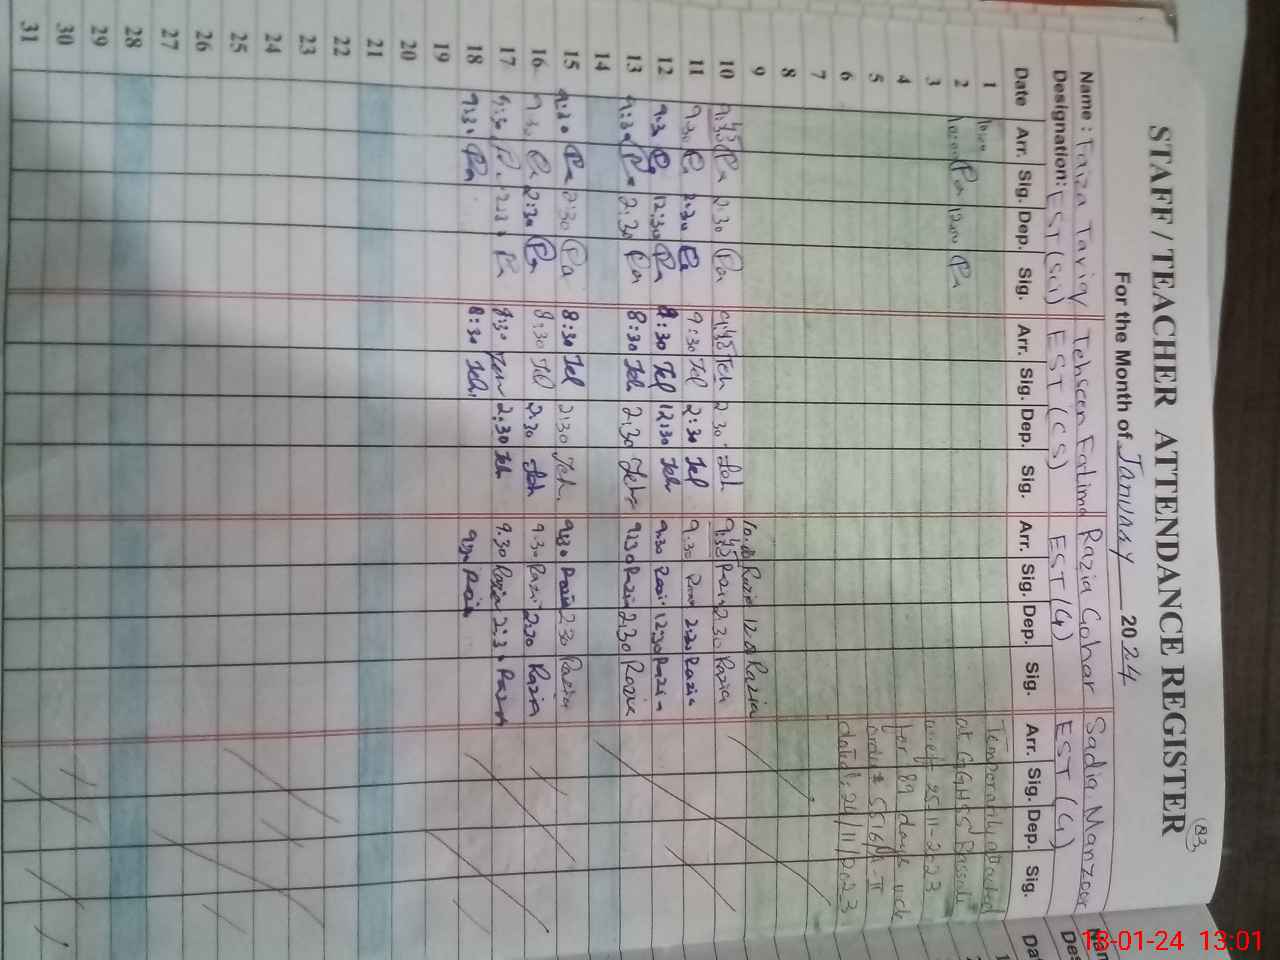 83
STAFF / TEACHER ATTENDANCE REGISTER
For the Month of January 2024
Name : Faiza Tariq Tehseen Fatima Razia Gohar Sadia Manzoor
Designation: EST (Sci) EST (CS) EST (G) EST (G)
Date Arr. Sig. Dep. Sig. Arr. Sig. Dep. Sig. Arr. Sig. Dep. Sig. Arr. Sig. Dep. Sig.
1 10:00 Temporarily attached
2 10:00 12:00 at GGHSS
3 w.e.f 25-11-2023
4 for 89 days
5 order # 5516
6 dated: 24/11/2023
7
8
9 10:00 Razia 12:00 Razia
10 9:45 2:30 9:45 Teh 2:30 Teh 9:45 Razia 2:30 Razia
11 9:30 2:30 9:30 Tel 2:30 Tel 9:30 2:30 Razia
12 9:30 12:30 8:30 Tel 12:30 Teh 9:30 Razia 12:30 Razia
13 9:30 2:30 8:30 Teh 2:30 Teh 9:30 Razia 2:30 Razia
14
15 9:30 2:30 8:30 Tel 2:30 Teh 9:30 Razia 2:30 Razia
16 9:30 2:30 8:30 Tel 2:30 Teh 9:30 Razia 2:30 Razia
17 9:30 2:30 8:30 2:30 Teh 9:30 Razia 2:30 Razia
18 9:30 8:30 Teh 9:30 Razia
19
20
21
22
23
24
25
26
27
28
29
30
31
18-01-24 13:01